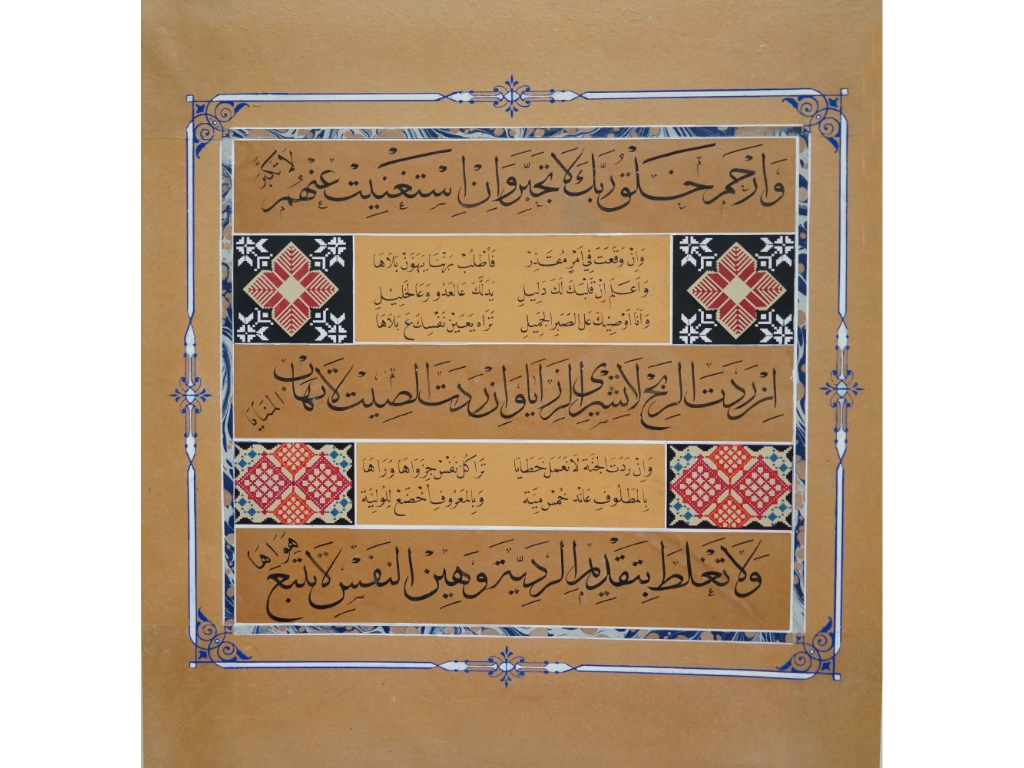 وَارْحَم خَلقْ رُبَّكَ لَا تجَبَّر وَاِنْ اِسْتَغْنَيِتْ عَنْهُمْ لَا تكبَّر
وَانْ وَقَعَتَ فِي اَمْرٍ مُقتَدِرْ فَأطْلُبْ رَبْنَا يهَوّنْ بَلَاهَا
وَاَعْلَم اِنْ قَلْبَكَ لَكَ دَلِيلِ يَدلَّكَ عَالعَدُو وَعَالخَلِيْلِ
وَانَا اَوْصِيْكَ عَلى الصَبرِ الجَمِيلِ تَرَاه يعَيِنْ نَفْسِكَ عَ بَلَاهَا
اِنْ رَدَتَ الرِبْحْ لَا تشِتْرِي الرَزايَا وَاِنْ رَدَتَ الصِيتْ لَا تهَابْ المَنَايَا
وَانْ رِدَتَ الجنَة لَا تعْمَل خَطايَا تَرَا كلْ نفَسْ جزوَاهَا وَرَاهَا
بِالمَطلُوفِ عَانِد خَمْسْ مِيَة وَبالمَعْروُفِ أخْضَعْ لِلْوِليَة
وَلَا تَغْلَطْ بِتَقْدِيمِ الرَدِيَّة وَهِينْ النَفَسْ لَا يتَبَعْ هَوَاهَا